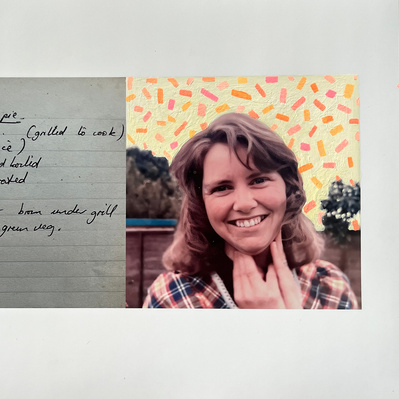 pie
(grilled to cook)
ice)
d boiled
ated
brown under grill
green veg.